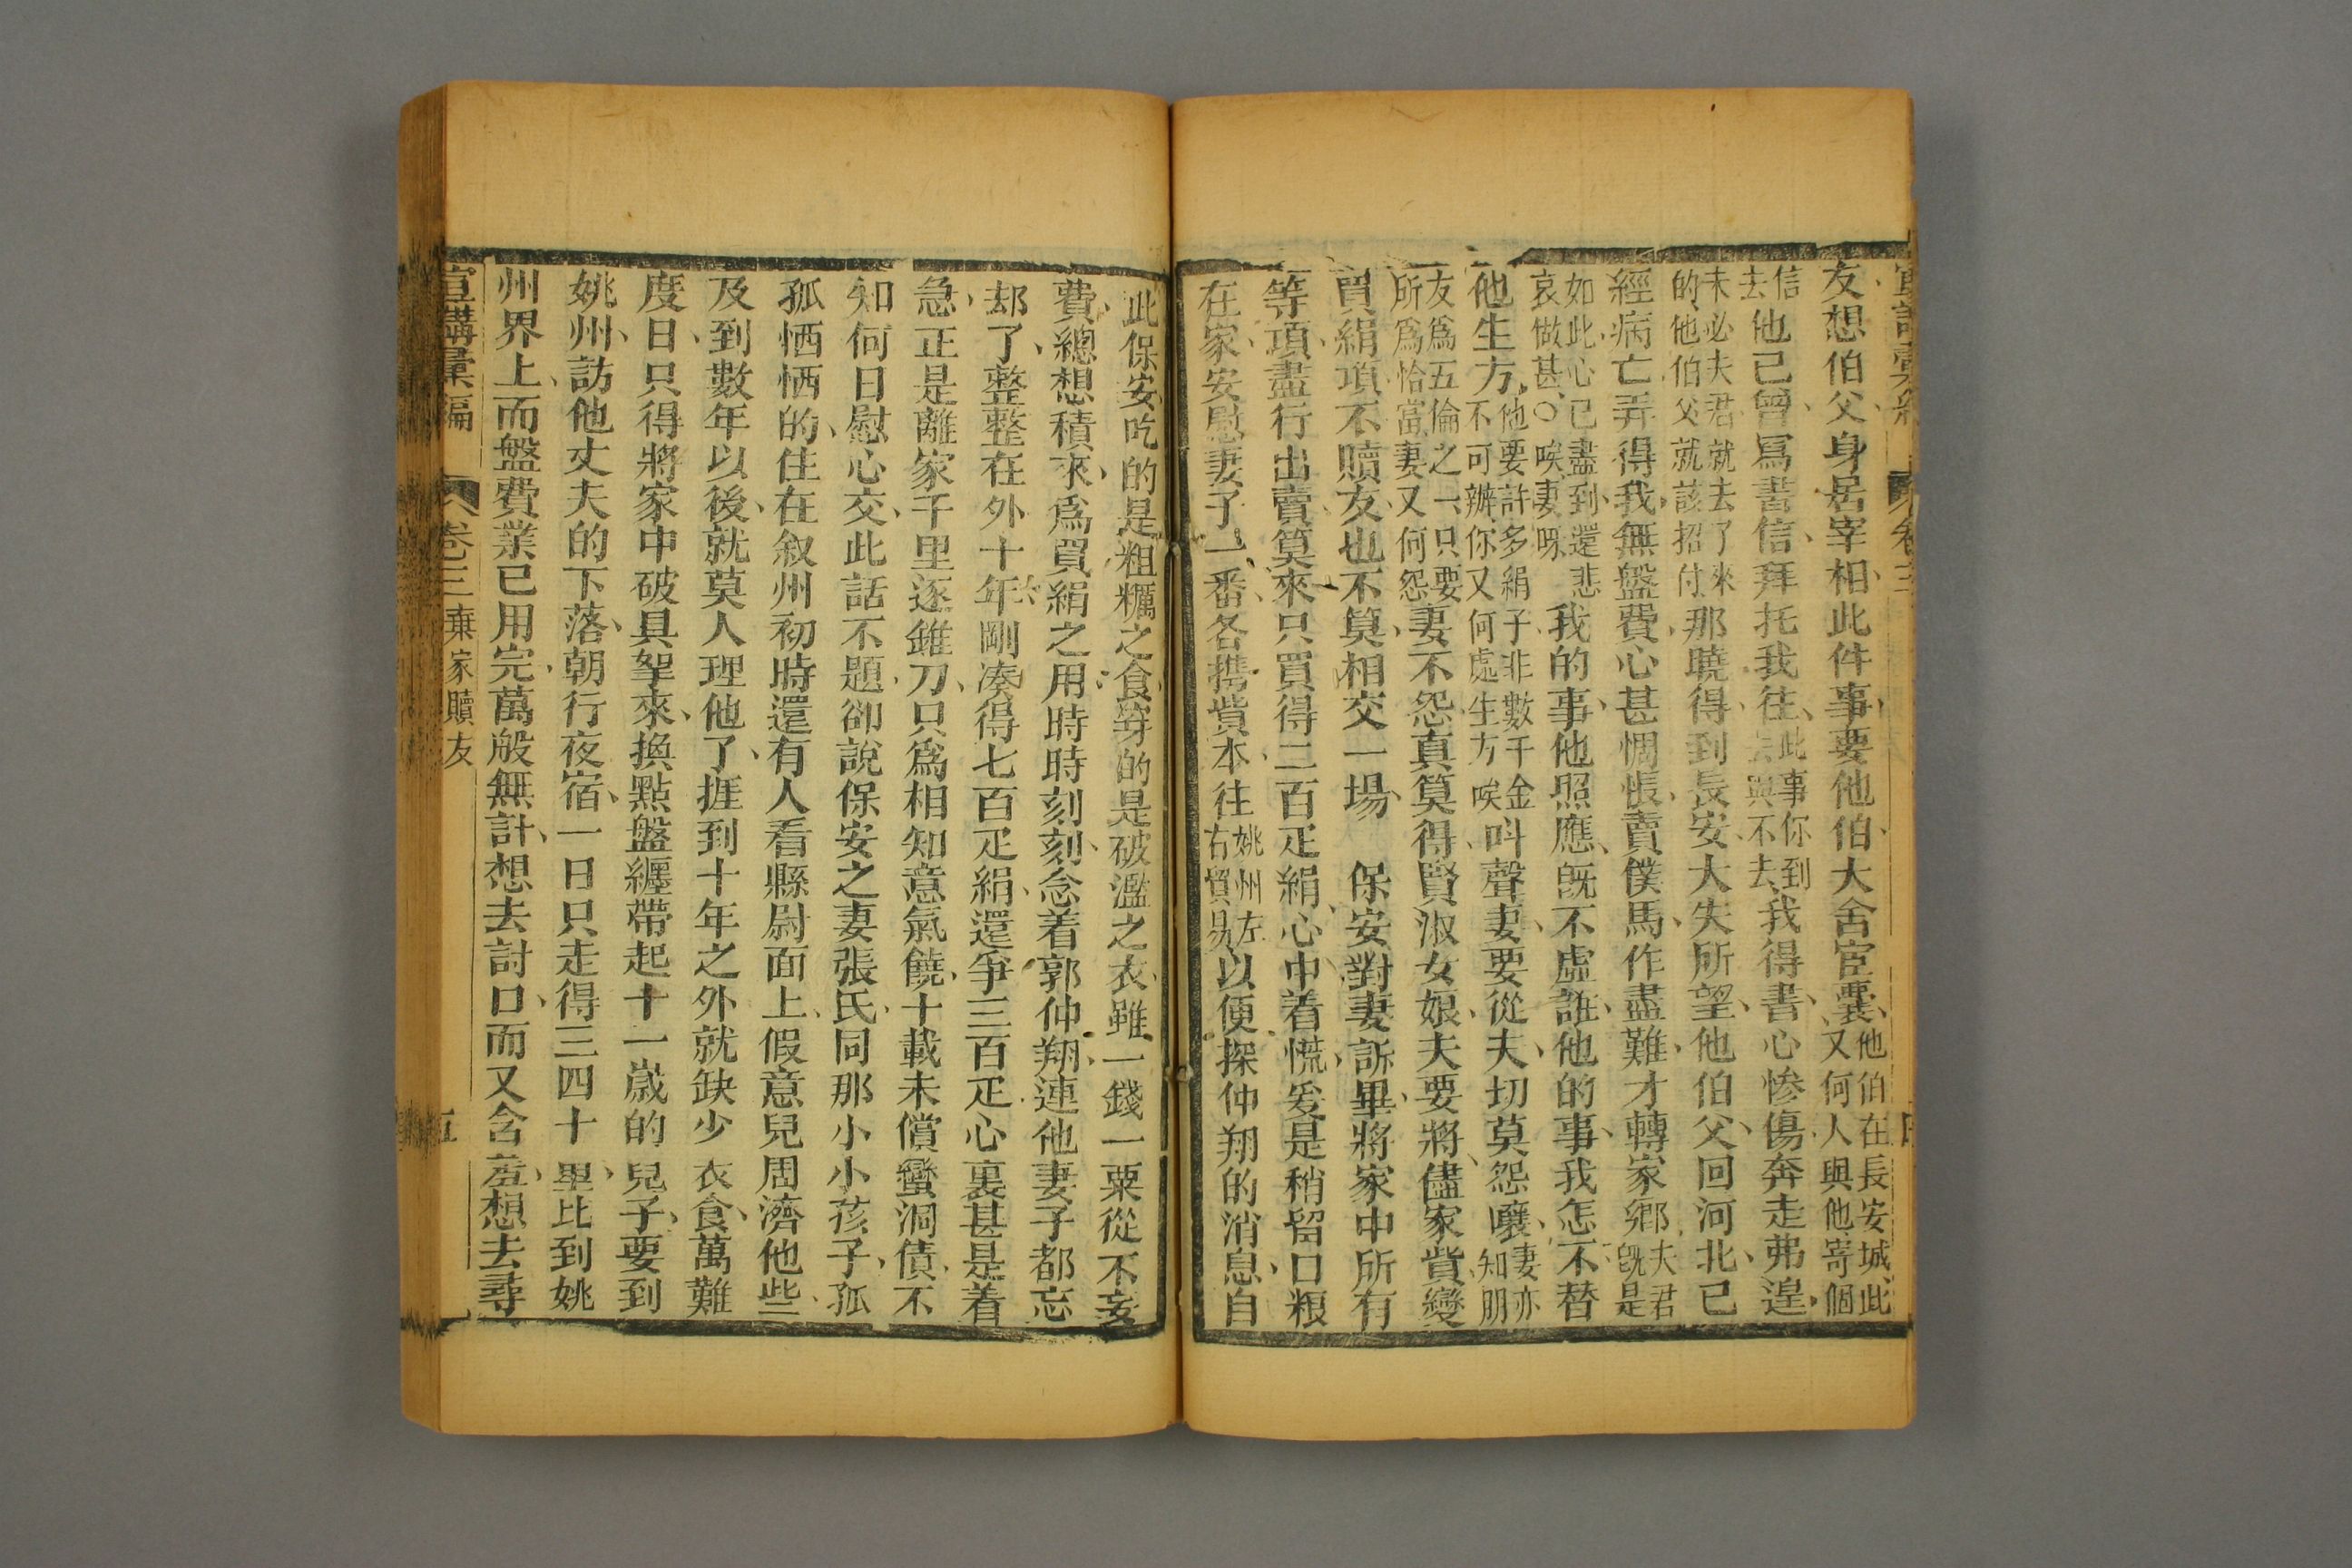 友想伯父身居宰相此件事要他伯大舍宦囊他伯在長安城此又何人與他寄個
信去他已曾寫書信拜托我往此事你到去與不去我得書心慘傷奔走弗遑
未必夫君就去了來的他伯父就該招付那曉得到長安大失所望他伯父回河北已
經病亡弄得我無盤費心甚惆悵賣僕馬作盡難才轉家鄉夫君既是
如此心已盡到還悲哀做甚○唉妻呀我的事他照應既不虛誑他的事我怎不替
他生方他要許多絹子非數千金不可辦你又何處生方唉叫聲妻要從夫切莫怨嚷妻亦知朋
友爲五倫之一只要所爲恰當妻又何怨妻不怨真算得賢淑女娘夫要將儘家貲變
買絹項不贖友也不算相交一場 保安對妻訴畢將家中所有
等項盡行出賣算來只買得二百疋絹心中着慌爰是稍留口粮
在家安慰妻子一番各携貲本往姚州左右貿易以便探仲翔的消息自
此保安吃的是粗糲之食穿的是破濫之衣雖一錢一粟從不妄
費總想積來爲買絹之用時時刻刻念着郭仲翔連他妻子都忘
却了整整在外十年剛凑得七百疋絹還爭三百疋心裏甚是着
急正是離家千里逐錐刀只爲相知意氣饒十載未償蠻洞債不
知何日慰心交此話不題卻說保安之妻張氏同那小小孩子孤
孤恓恓的住在敘州初時還有人看縣尉面上假意兒周濟他些
及到數年以後就莫人理他了捱到十年之外就缺少衣食萬難
度日只得將家中破具挐來換點盤纏帶起十一歲的兒子要到
姚州訪他丈夫的下落朝行夜宿一日只走得三四十里比到姚
州界上而盤費業已用完萬般無計想去討口而又含羞想去尋
宣講彙編 卷三 棄家贖友 五